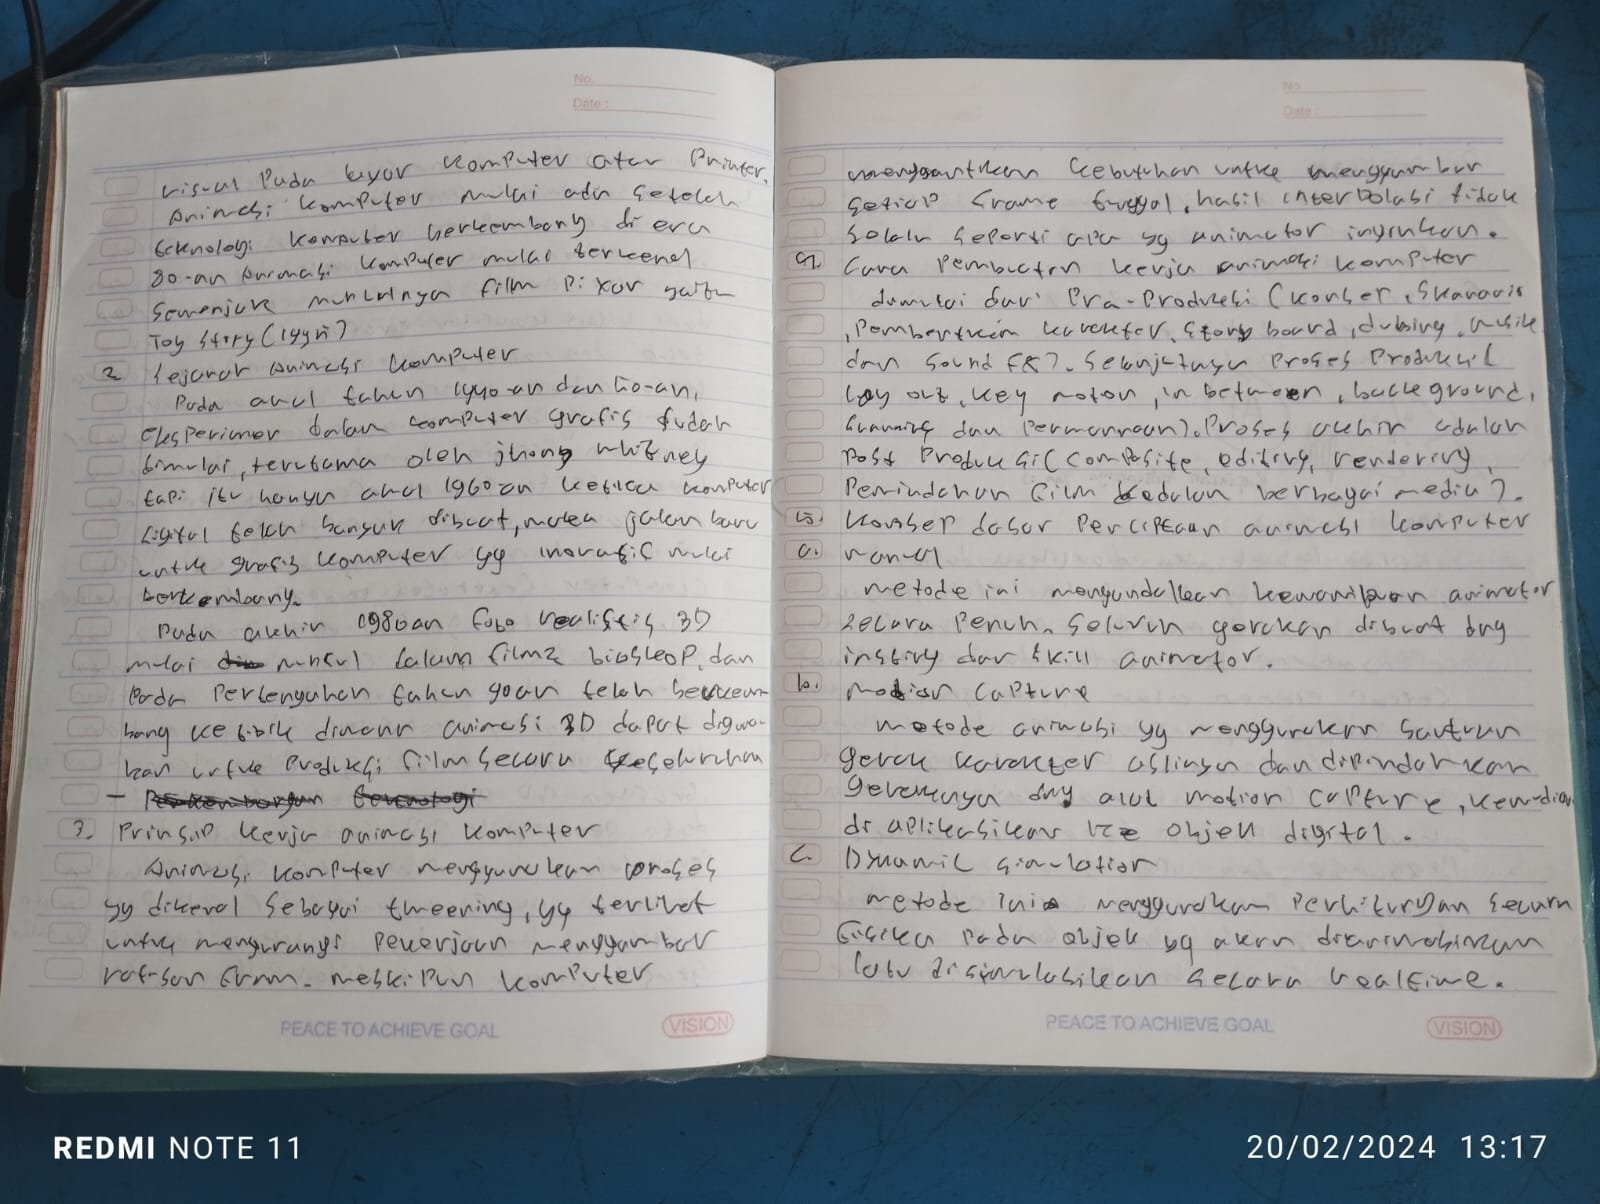 No.
Date :
visual Pada layar komputer atau Printer.
Animasi komputer mulai ada setelah
teknologi komputer berkembang di era
80-an Animasi komputer mulai terkenal
Semenjak munculnya film Pixar yaitu
Toy Story (1995)
2 Sejarah Animasi komputer
Pada awal tahun 1940-an dan 50-an,
eksperimen dalam komputer grafis sudah
dimulai, terutama oleh jhong whitney
tapi itu hanya awal 1960an ketika komputer
digital telah banyak dibuat, maka jalan baru
untuk grafis komputer yg inovatif mulai
berkembang.
Pada akhir 1980an foto realistis 3D
mulai muncul dalam film2 bioskop, dan
Pada Pertengahan tahun 90an telah berkem-
bang ke titik dimana animasi 3D dapat diguna-
kan untuk Produksi film secara keseluruhan
- Perkembangan teknologi
3. Prinsip kerja animasi komputer
Animasi komputer menggunakan proses
yg dikenal sebagai tweening, yg terlibat
untuk mengurangi Pekerjaan menggambar
ratusan fram. meskipun komputer
PEACE TO ACHIEVE GOAL VISION
No.
Date :
menggantikan kebutuhan untuk menggambar
setiap frame tunggal, hasil interpolasi tidak
Selalu seperti apa yg animator inginkan.
4. Cara Pembuatan kerja animasi komputer
dimulai dari Pra-Produksi (konsep, Skenario
, Pembentukan karakter, story board, dubbing, musik
dan sound FX). Selanjutnya Proses Produksi(
Lay out, key motion, in between, background,
Scanning dan Pewarnaan). Proses akhir adalah
Post Produksi (composite, editing, rendering,
Pemindahan film kedalam berbagai media).
5. Konsep dasar Penciptaan animasi komputer
a. manual
metode ini mengandalkan kemampuan animator
secara Penuh. Seluruh gerakan dibuat dng
insting dan skill animator.
b. motion capture
metode animasi yg menggunakan
gerak karakter aslinya dan dipindahkan
geraknya dng alat motion capture, kemudian
di aplikasikan ke objek digital.
c. Dynamic simulation
metode ini menggunakan Perhitungan secara
fisika Pada objek yg akan dianimasikan
lalu disimulasikan secara realtime.
PEACE TO ACHIEVE GOAL VISION
REDMI NOTE 11 20/02/2024 13:17